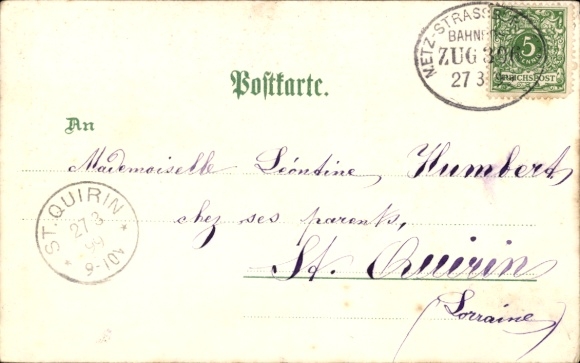 METZ-STRASSBURG
BAHNPOST
ZUG 306
27 3 9
5
REICHSPOST
Postkarte.
An
Mademoiselle Léontine Humbert
chez ses parents,
St. Quirin
(Lorraine)
ST. QUIRIN
27 3
99
9-10V